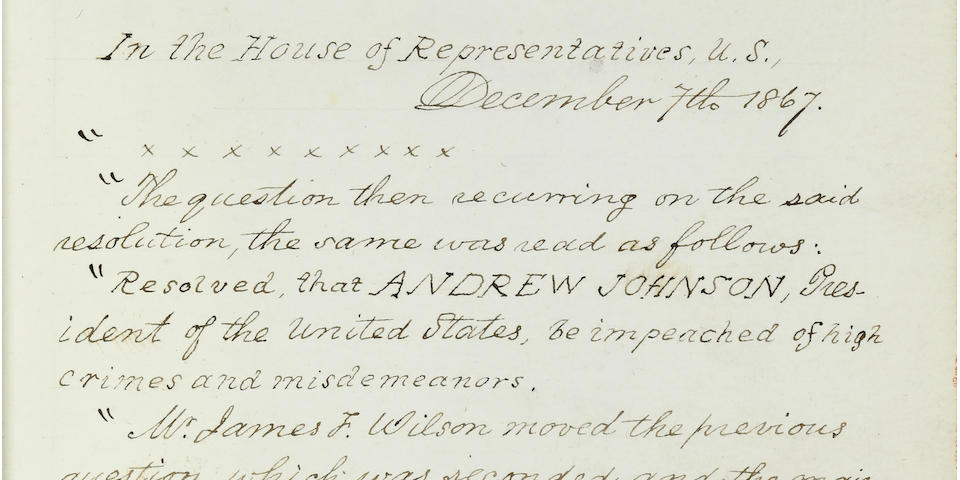 In the House of Representatives, U.S.,
December 7th 1867.
" x x x x x x x x x
"The question then recurring on the said
resolution, the same was read as follows:
"Resolved, that ANDREW JOHNSON, Pres-
ident of the United States, be impeached of high
crimes and misdemeanors.
" Mr. James F. Wilson moved the previous
question, which was seconded, and the main